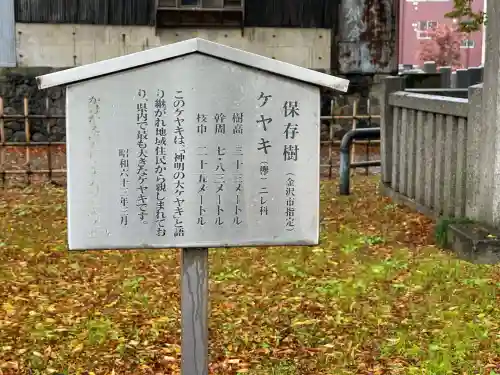 保存樹（金沢市指定）
ケヤキ（欅）ニレ科
樹高 三十三メートル
幹周 七・八三メートル
枝巾 二十五メートル
このケヤキは「神明の大ケヤキ」と語
りつがれ地域住民から親しまれてお
り、県内で最も大きなケヤキです。
昭和六十三年三月